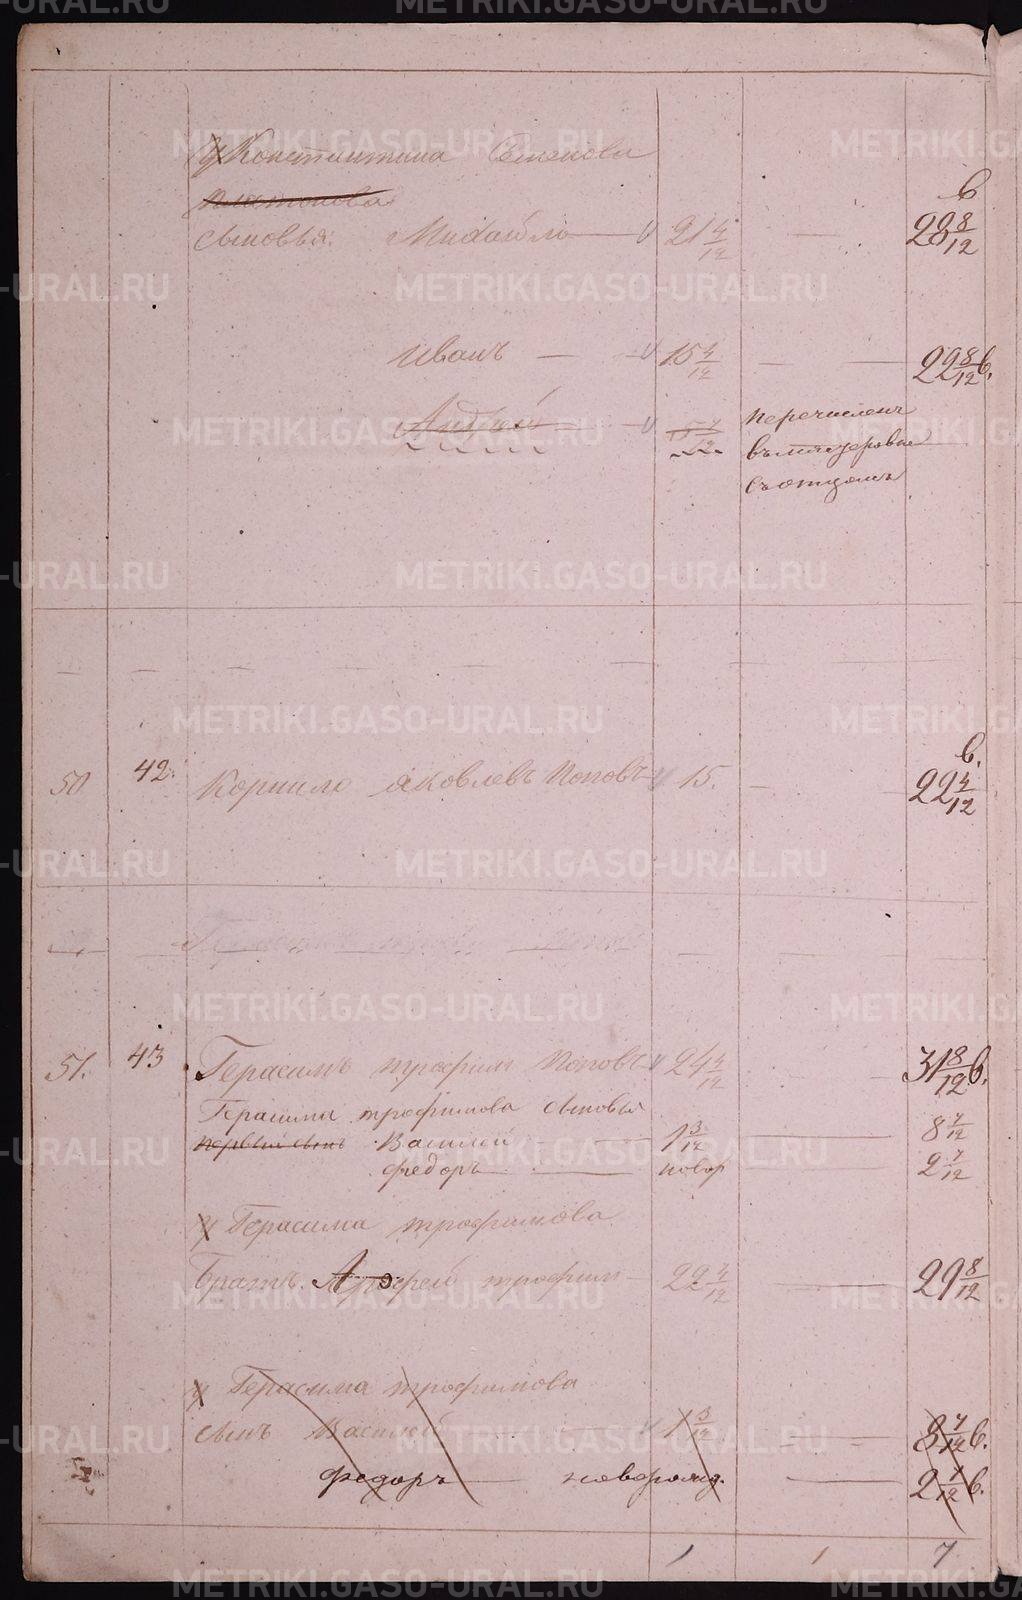 у Константина Семенова
Платонова
сыновья. Михайло 21 4/12 — 28 8/12 в
Иванъ — 15 4/12 — 22 8/12 в.
Андрей 15 4/12 перечисленъ
съ отцомъ
50 42. Корнило Яковлевъ Поповъ 15. — 22 4/12 в.
51. 43 Герасимъ трофим Поповъ 24 4/12 — 31 8/12 в.
Герасима трофимова сыновья
первый сынъ Василей — 1 3/12 — 8 7/12
федоръ — новор 2 7/12
у Герасима трофимова
Братъ. Андрей трофим — 22 4/12 — 29 8/12
у Герасима трофимова
сынъ Василей 1 3/12 — 8 7/12 в.
федоръ — новорожд. — 2 7/12 в.
1 1 7
METRIKI.GASO-URAL.RU